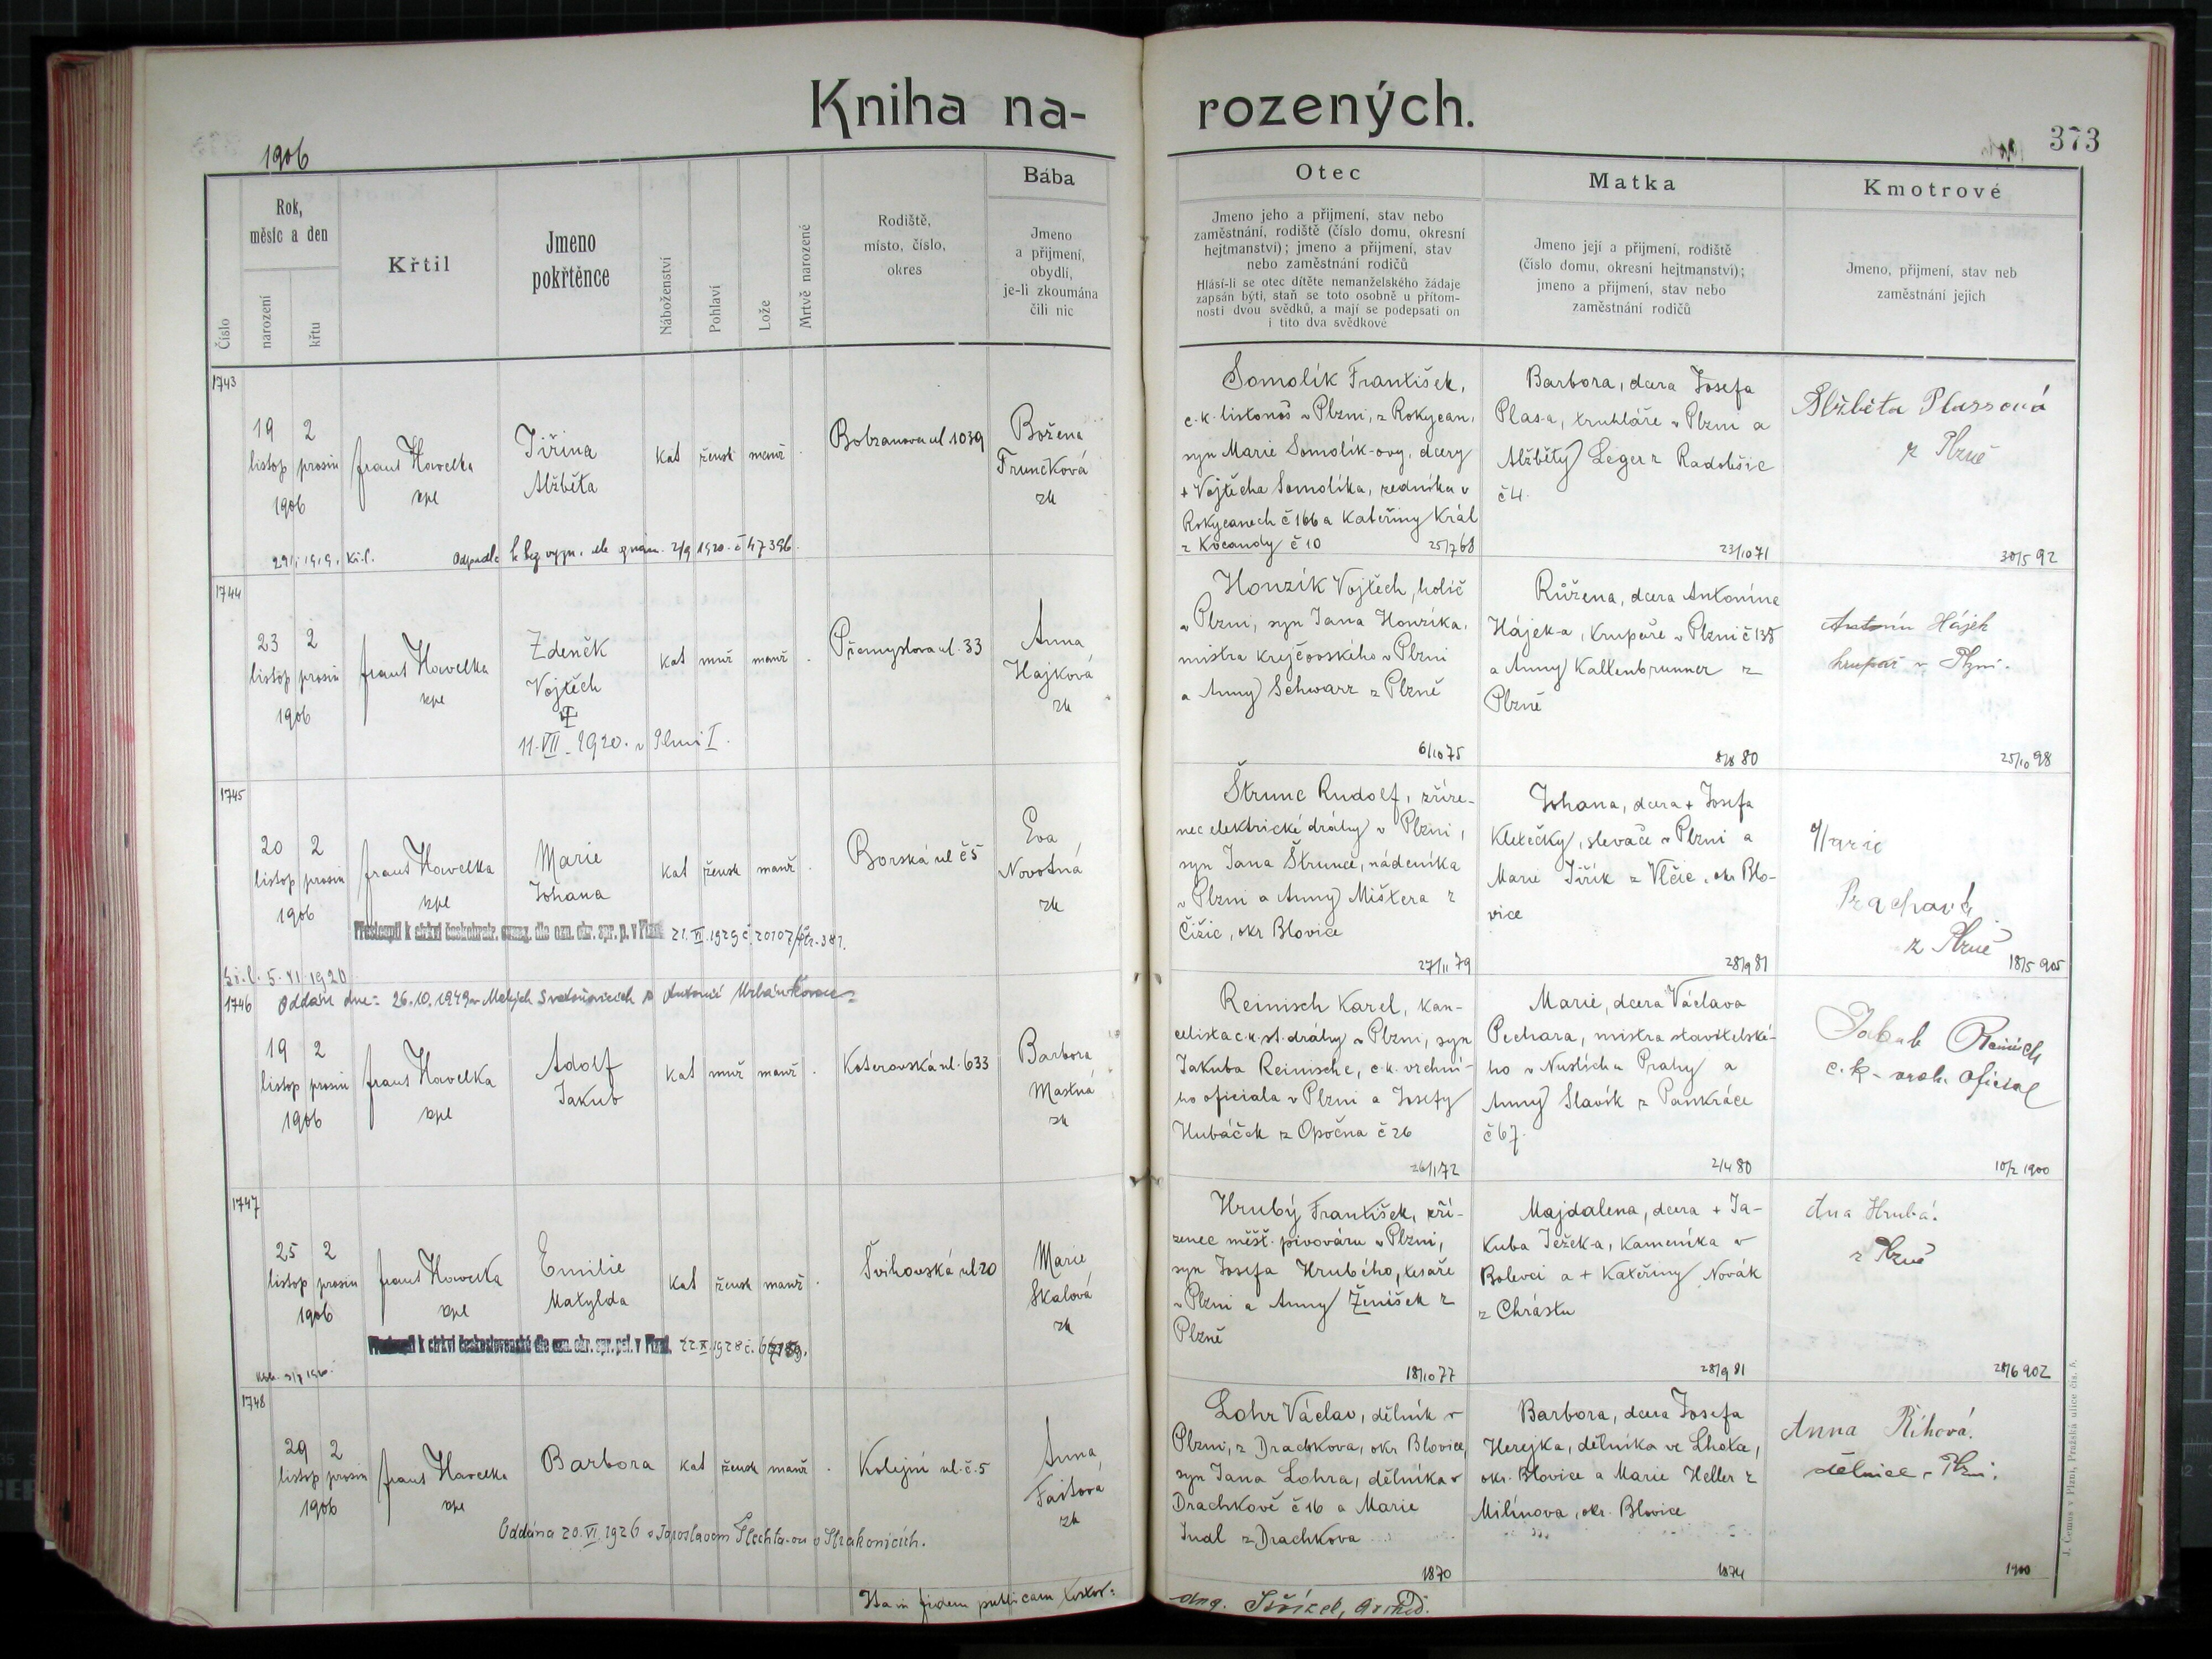 Kniha na-
rozených.
373
1906
Číslo
Rok,
měsíc a den
narození
křtu
Křtil
Jmeno
pokřtěnce
Náboženství
Pohlaví
Lože
Mrtvě narozené
Rodiště,
místo, číslo,
okres
Bába
Jmeno
a přijmení,
obydlí,
je-li zkoumána
čili nic
Otec
Jmeno jeho a přijmení, stav nebo
zaměstnání, rodiště (číslo domu, okresní
hejtmanství); jmeno a přijmení, stav
nebo zaměstnání rodičů
Hlásí-li se otec dítěte nemanželského žádaje
zapsán býti, staň se toto osobně u přítom-
nosti dvou svědků, a mají se podepsati on
i tito dva svědkové
Matka
Jmeno její a přijmení, rodiště
(číslo domu, okresní hejtmanství);
jmeno a přijmení, stav nebo
zaměstnání rodičů
Kmotrové
Jmeno, přijmení, stav neb
zaměstnání jejich
1743
19 2
listop prosin
1906
Frant Havelka
kpl
Jiřina
Alžběta
kat žensk manž .
Bobzanova ul 1039
Božena
Frunčková
zk
Somolík František,
c.k. listonoš v Plzni, z Rokycan,
syn Marie Somolík-ovy, dcery
+ Vojtěcha Somolíka, zedníka v
Rokycanech č 166 a Kateřiny Král
z Kocandy č 10
25/7 68
Barbora, dcera Josefa
Plas-a, truhláře v Plzni a
Alžběty Leger z Radošic
č 4.
23/10 71
Alžběta Plassová
z Plzně
30/5 92
1919. kř.l.
Odpadla k bez vyzn. dle oznám. 2/9 1920. č 47396.
1744
23 2
listop prosin
1906
Frant Havelka
kpl
Zdeněk
Vojtěch
11. VII. 1920. v Plzni I.
kat muž manž .
Přemyslova ul. 33
Anna
Hájková
zk
Honzík Vojtěch, holič
v Plzni, syn Jana Honzíka,
mistra krejčovského v Plzni
a Anny Schwarz z Plzně
6/10 75
Růžena, dcera Antonína
Hájek-a, krupaře v Plzni č 138
a Anny Kaltenbrunner z
Plzně
8/8 80
Antonín Hájek
krupař v Plzni.
25/10 98
1745
20 2
listop prosin
1906
Frant Havelka
kpl
Marie
Johana
kat žensk manž .
Borská ul č 5
Eva
Novotná
zk
Štrunc Rudolf, zříze-
nec elektrické dráhy v Plzni,
syn Jana Štrunce, nádeníka
v Plzni a Anny Mištera z
Čižic, okr Blovice
27/11 79
Johana, dcera + Josefa
Kletečky, slevače v Plzni a
Marie Jiřík z Vlčic, okr Blo-
vice
28/9 81
Marie
Prachavá
z Plzně
18/5 905
Přestoupil k církvi českobratr. evang. dle ozn. okr. spr. p. v Plzni 21. VI. 1929 č. 20107
kř.l. 5. VI 1920
1746
Oddán dne: 26.10.1949 v Malých Svatoňovicích s Antonií Urbánkovou
19 2
listop prosin
1906
Frant Havelka
kpl
Adolf
Jakub
kat muž manž .
Koterovská ul. 633
Barbora
Mastná
zk
Reinisch Karel, kan-
celista c.k. st. dráhy v Plzni, syn
Jakuba Reinische, c.k. vrchní-
ho oficiala v Plzni a Josefy
Hubáček z Opočna č 26
26/1 72
Marie, dcera Václava
Pechara, mistra stavitelské-
ho v Nuslích u Prahy a
Anny Slavík z Pankráce
č 67.
2/4 80
Jakub Reinisch
c.k. vrch. oficial
10/2 1900
1747
25 2
listop prosin
1906
Frant Havelka
kpl
Emilie
Matylda
kat žensk manž .
Švihovská ul 20
Marie
Skalová
zk
Hrubý František, zří-
zenec měšť. pivováru v Plzni,
syn Josefa Hrubého, tesaře
v Plzni a Anny Ženíšek z
Plzně
18/10 77
Majdalena, dcera + Ja-
kuba Ježek-a, kameníka v
Bolevci a + Kateřiny Novák
z Chrástu
28/9 81
Ana Hrubá.
z Plzně
28/6 902
Přestoupil k církvi československé dle ozn. okr. spr. pol. v Plzni. 22. X. 1928 č.
1748
29 2
listop prosin
1906
Frant Havelka
kpl
Barbora
kat žensk manž .
Kolejní ul. č. 5
Anna
Faitová
zk
Lohr Václav, dělník v
Plzni, z Drachkova, okr Blovice,
syn Jana Lohra, dělníka v
Drachkově č 16 a Marie
Indl z Drachkova
1870
Barbora, dcera Josefa
Herejka, dělníka ve Lhota,
okr. Blovice a Marie Heller z
Milínova, okr. Blovice
1874
Anna Říhová.
dělnice v Plzni.
1900
Oddána 20. VI. 1926 s Jaroslavem Šlechta-ou v Strakonicích.
Ita in fidem publicam testor:
J. Čemus v Plzni, Pražská ulice čís. 8.